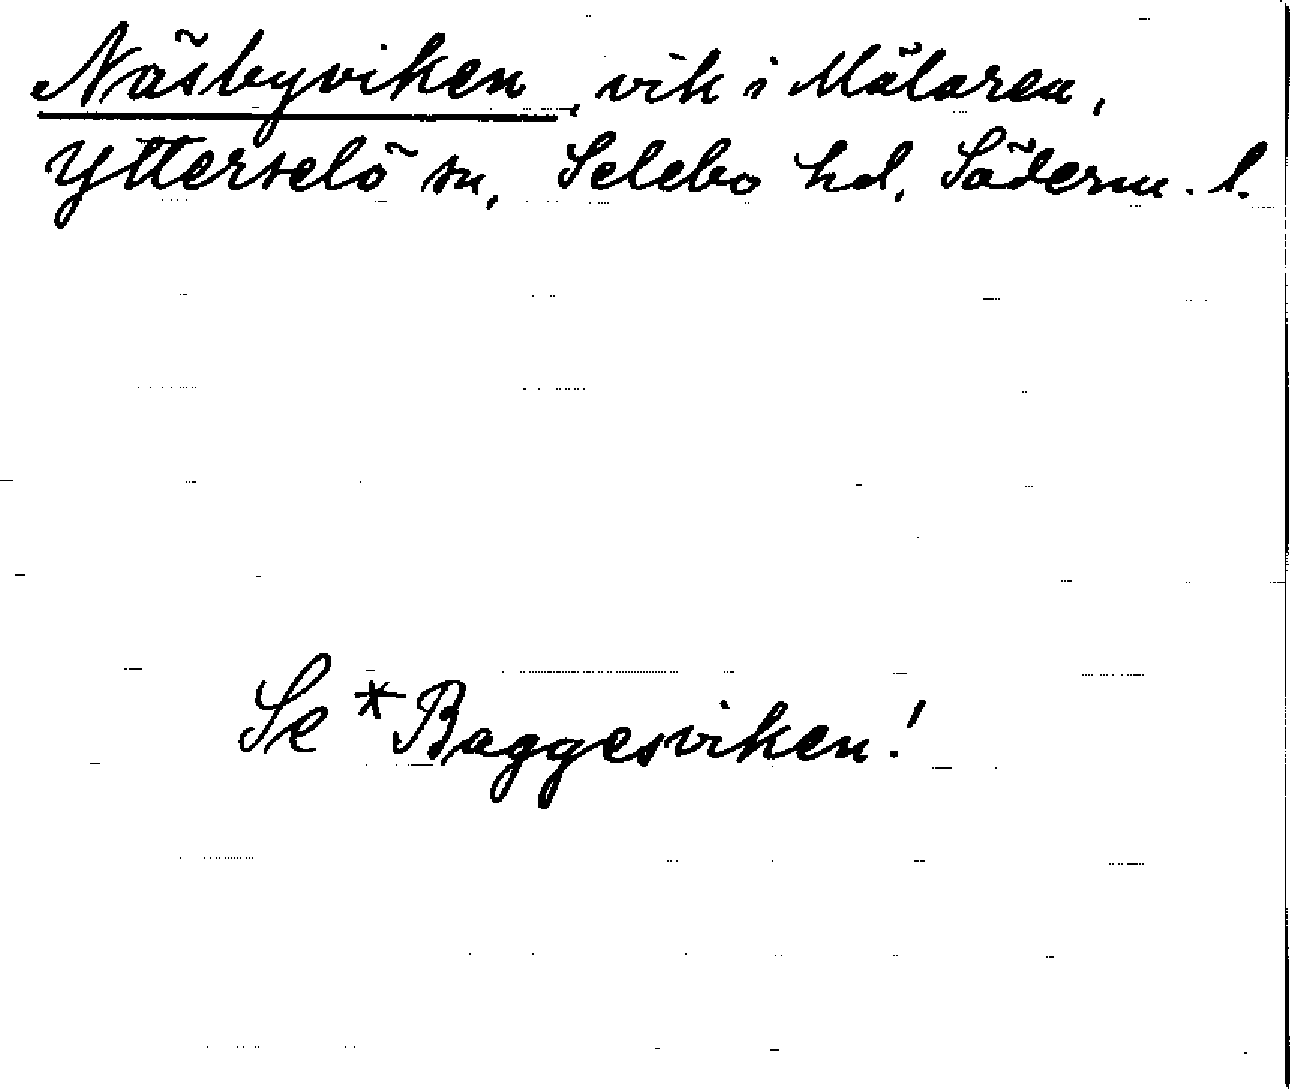 Näsbyviken, vik i Mälaren,
Ytterselö sn, Selebo hd, Söderm. l.
Se *Baggesviken!